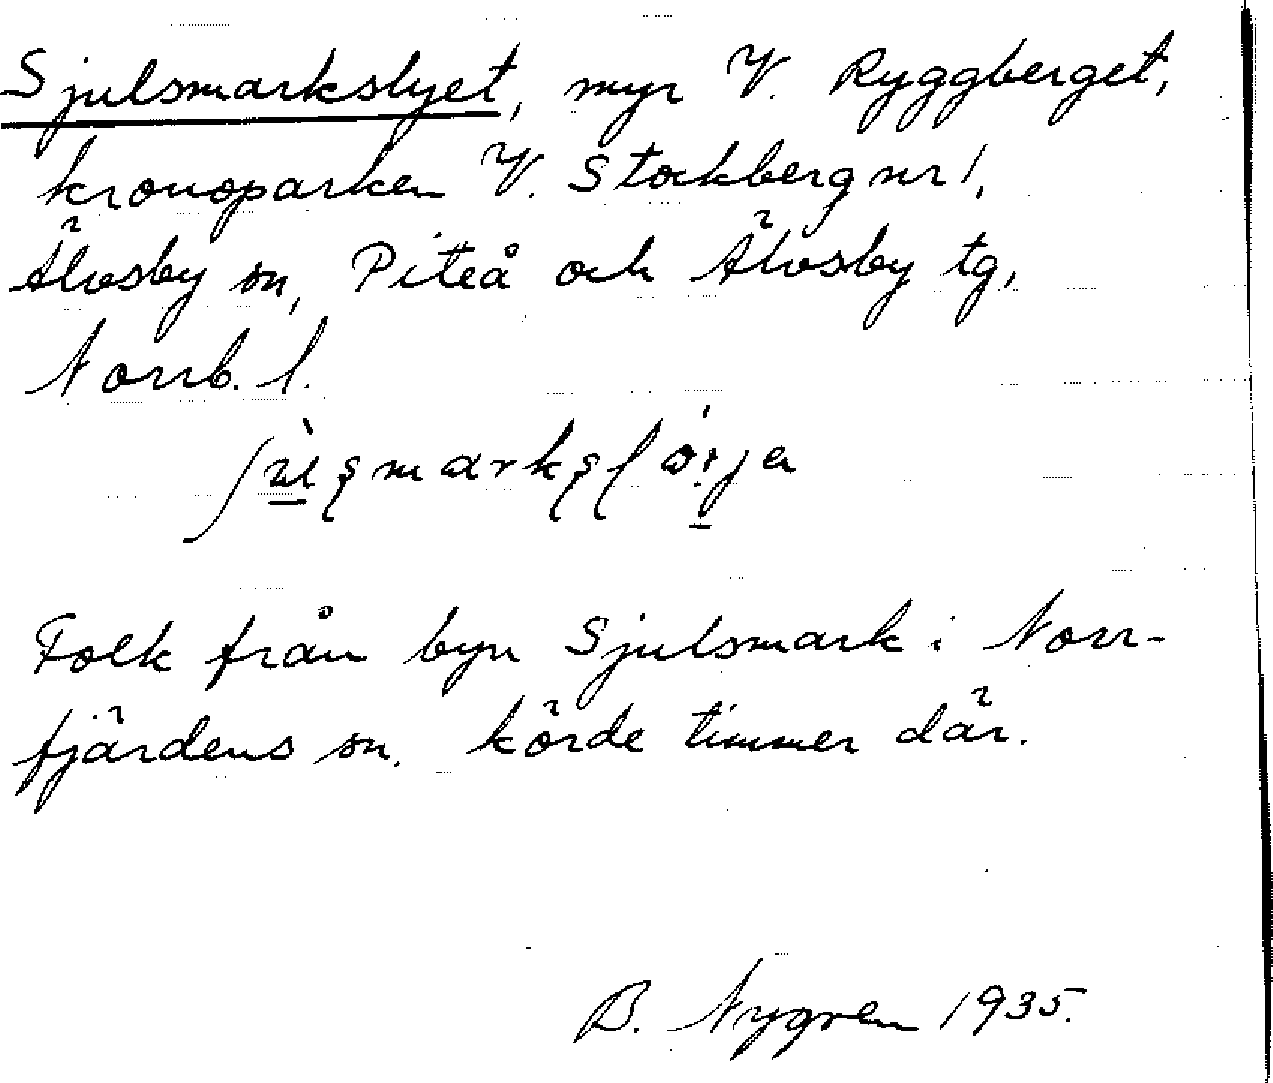 Sjulsmarkslyet, myr V. Ryggberget,
kronoparken V. Stockberg nr 1,
Älvsby sn, Piteå och Älvsby tg,
Norrb. l.
Folk från byn Sjulsmark i Norr-
fjärdens sn. körde timmer där.
B. Nygren 1935.